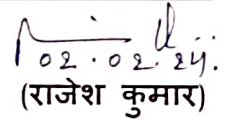 02.02.24.
(राजेश कुमार)